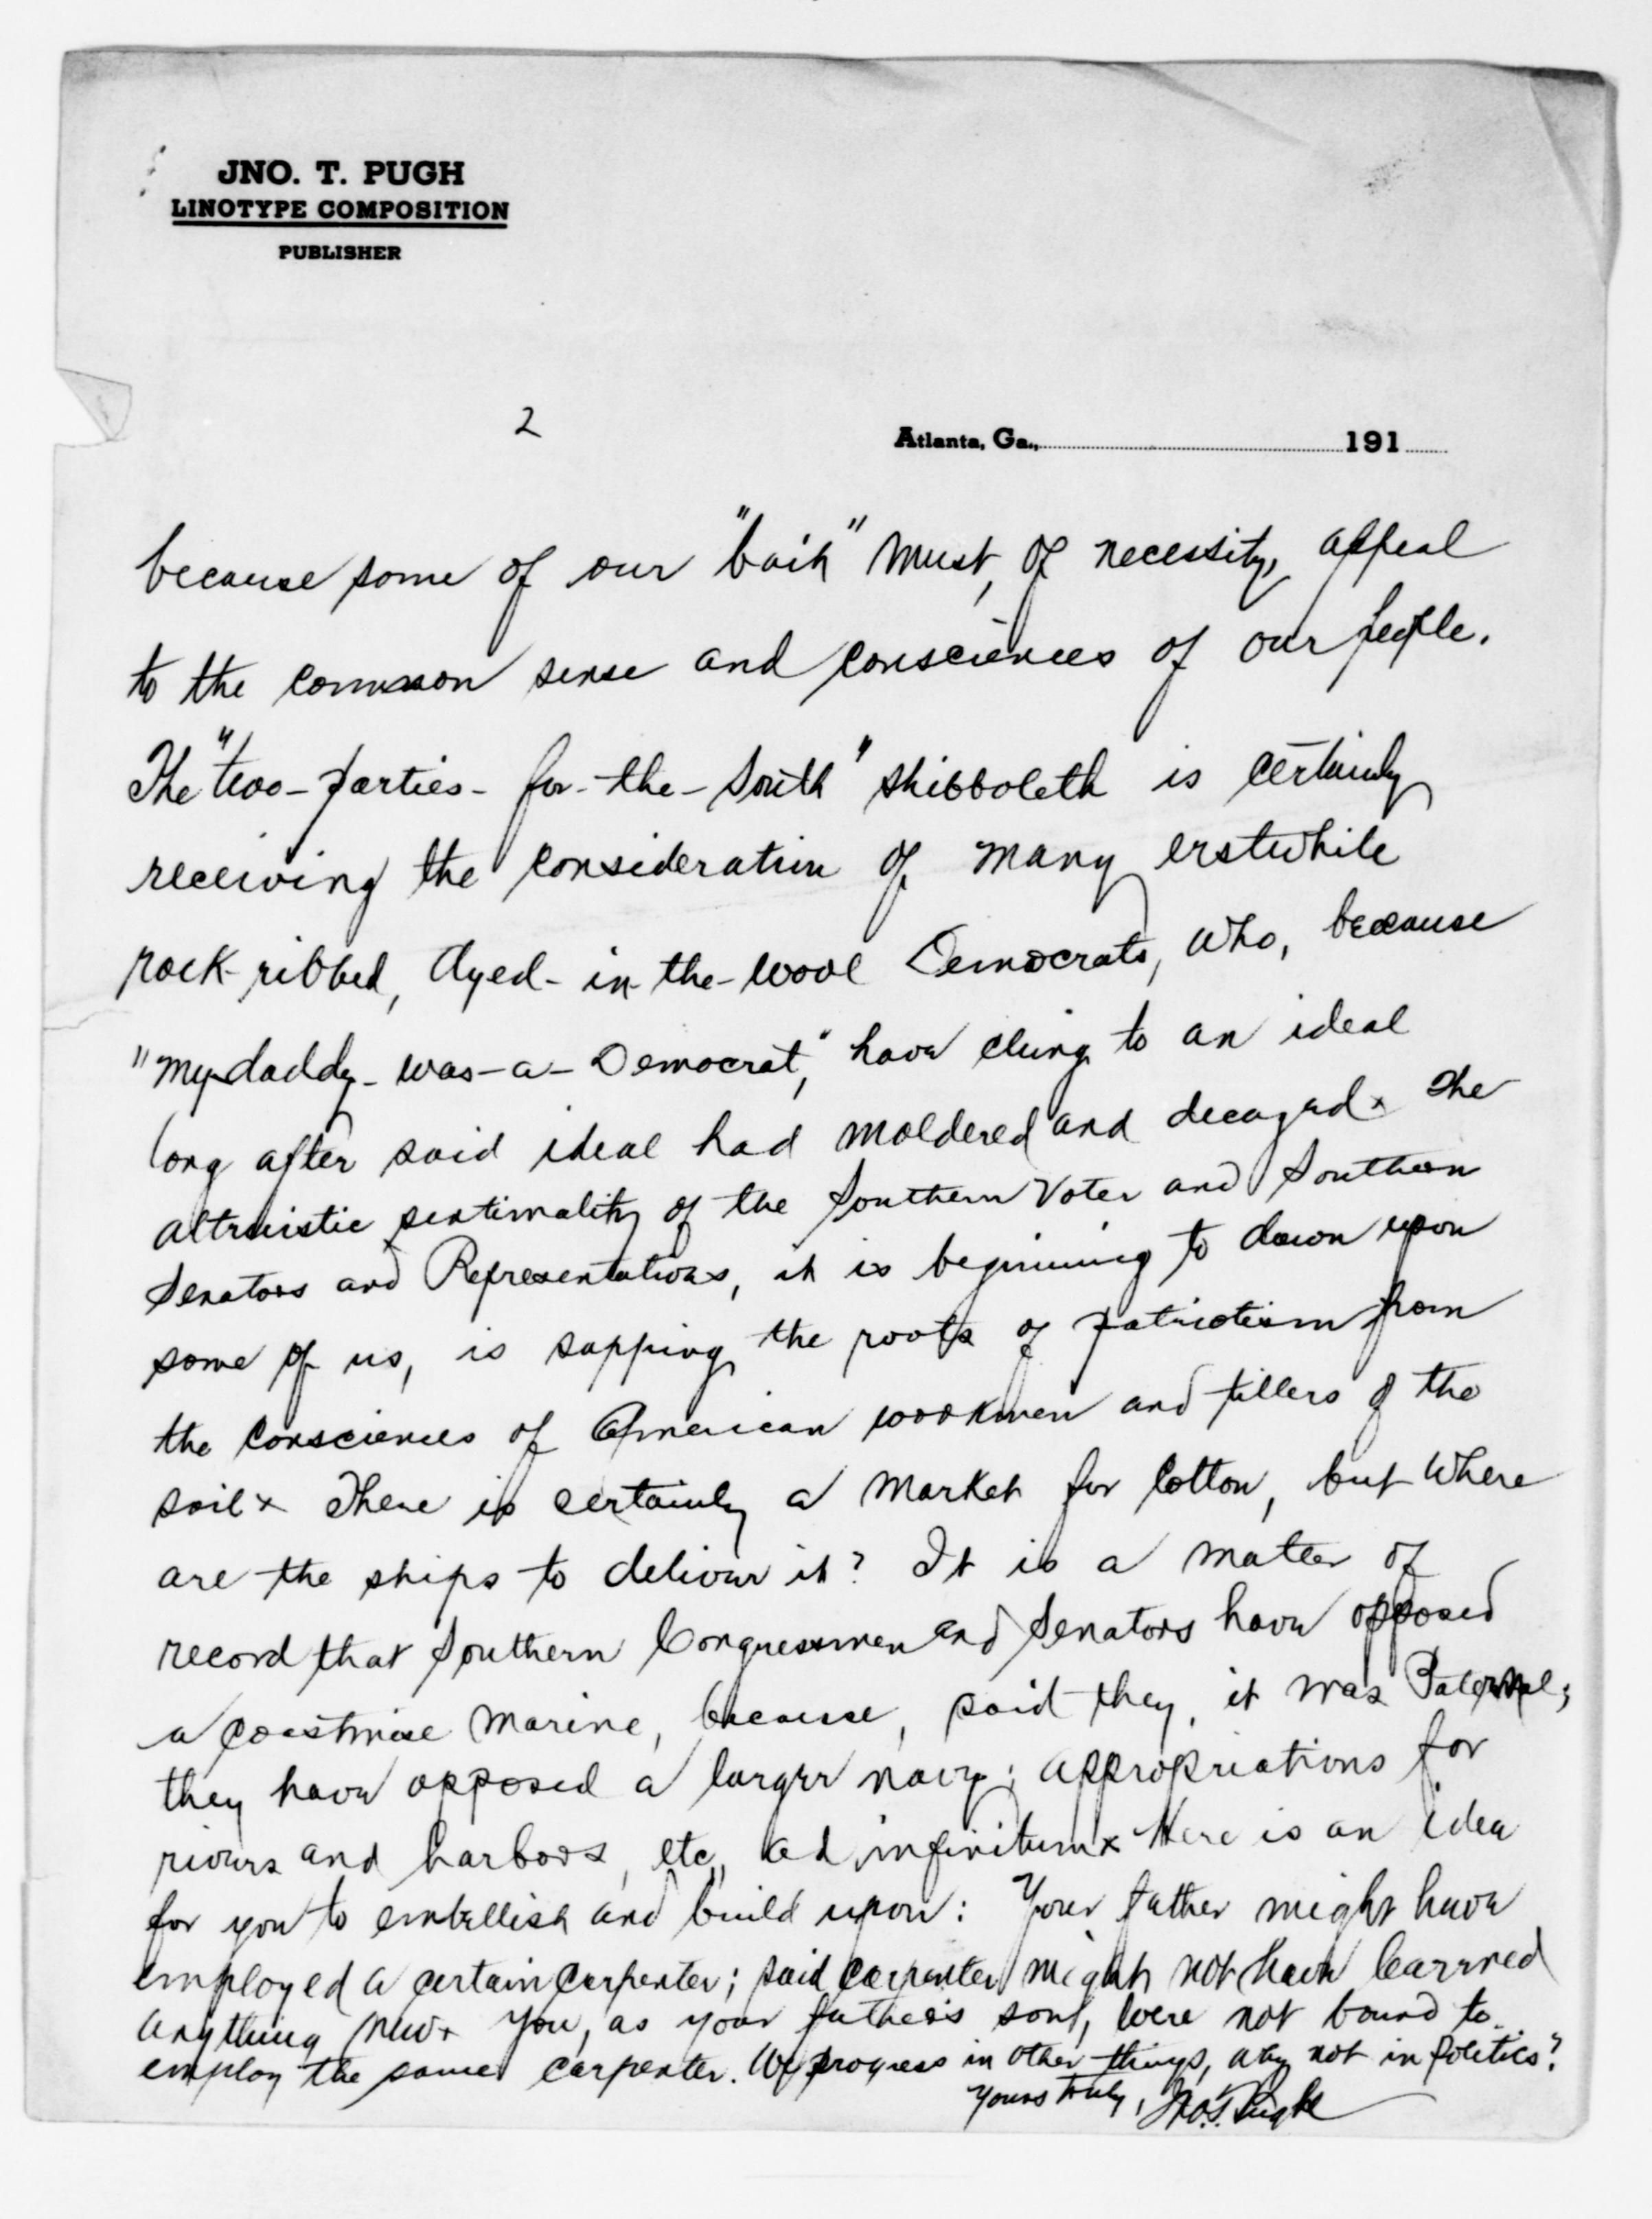 JNO. T. PUGH
LINOTYPE COMPOSITION
PUBLISHER
2
Atlanta, Ga., 191
because some of our "bait" must, of necessity, appeal
to the common sense and consciences of our people.
The "two-parties-for-the-South" shibboleth is certainly
receiving the consideration of many erstwhile
rock-ribbed, dyed-in-the-wool Democrats, who, because
"my-daddy-was-a-Democrat," have clung to an ideal
long after said ideal had moldered and decayed x The
altruistic sentimality of the Southern Voter and Southern
Senators and Representatives, it is beginning to dawn upon
some of us, is sapping the roots of patriotism from
the consciences of American workmen and tillers of the
soil x There is certainly a market for cotton, but where
are the ships to deliver it? It is a matter of
record that Southern Congressmen and Senators have opposed
a coastwise marine, because, said they, it was Paternal;
they have opposed a larger navy; appropriations for
rivers and harbors, etc., ad infinitum x Here is an idea
for you to embellish and build upon: Your father might have
employed a certain carpenter; said carpenter might not have learned
anything new x You, as your father's son, were not bound to
employ the same carpenter. We progress in other things, why not in politics?
Yours truly, Jno. T. Pugh